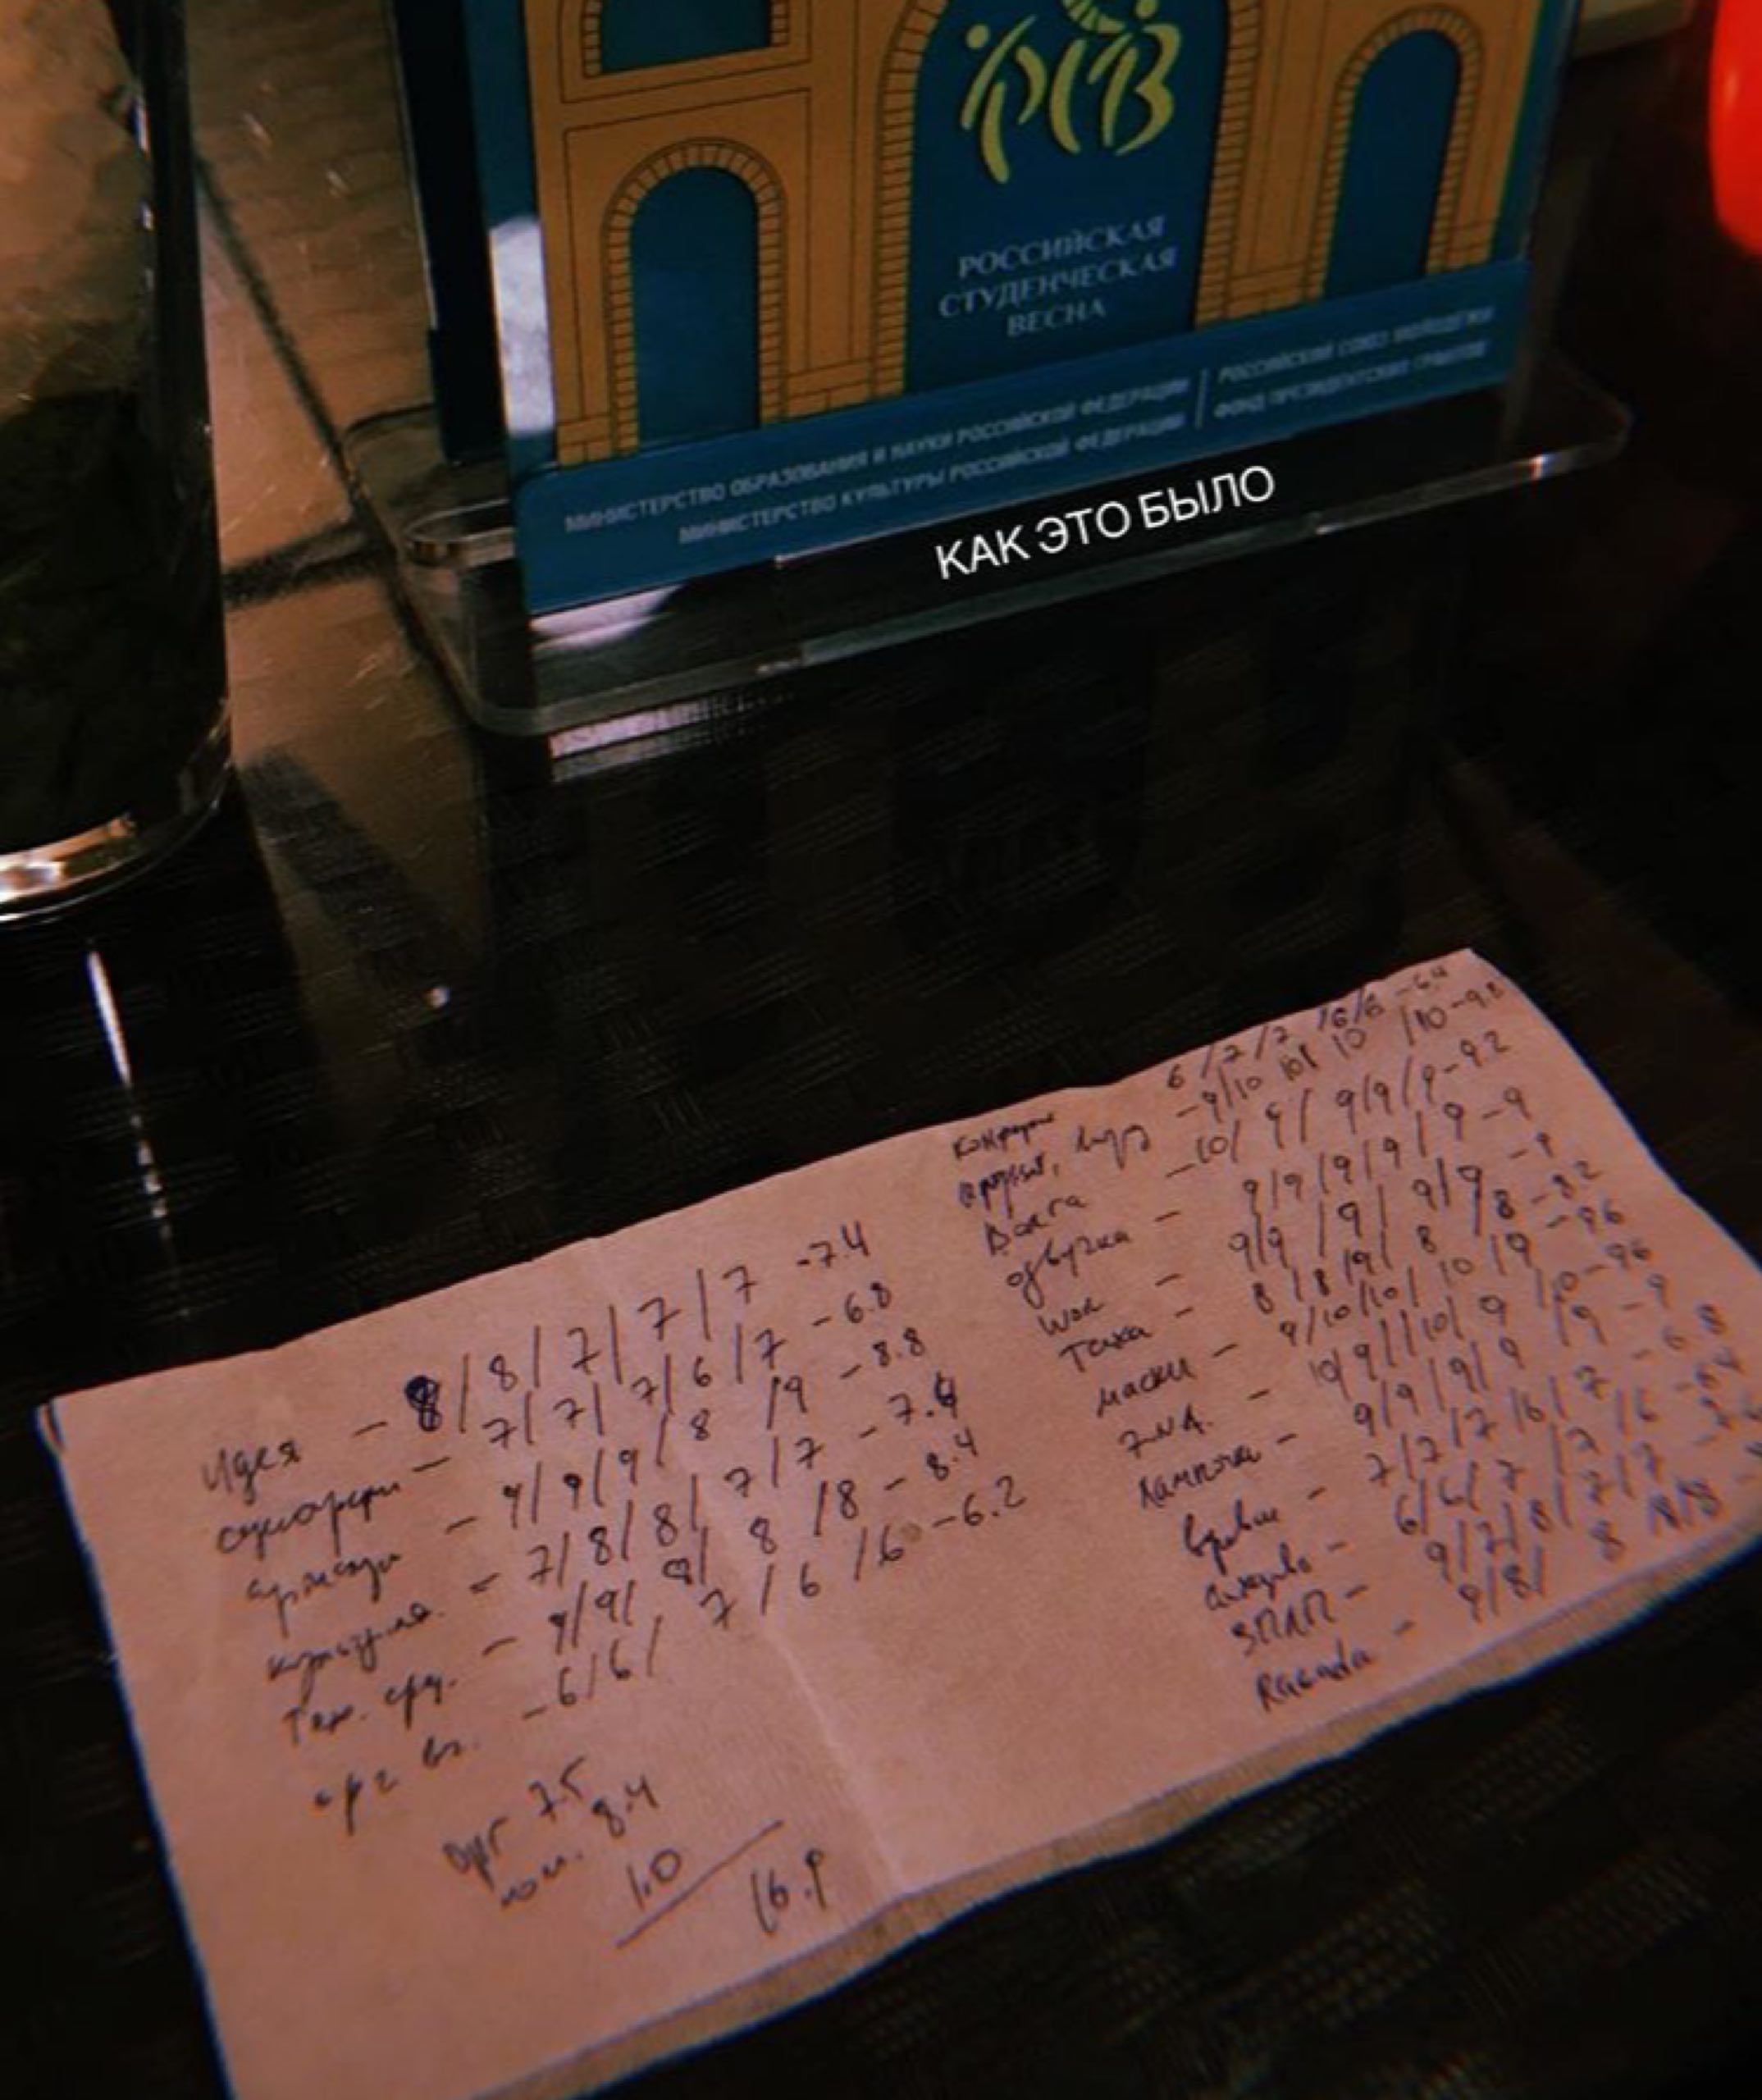 РСВ
РОССИЙСКАЯ
СТУДЕНЧЕСКАЯ
ВЕСНА
МИНИСТЕРСТВО ОБРАЗОВАНИЯ И НАУКИ РОССИЙСКОЙ ФЕДЕРАЦИИ
МИНИСТЕРСТВО КУЛЬТУРЫ РОССИЙСКОЙ ФЕДЕРАЦИИ
РОССИЙСКИЙ СОЮЗ МОЛОДЕЖИ
ФОНД ПРЕЗИДЕНТСКИХ ГРАНТОВ
КАК ЭТО БЫЛО
Идея - 8/8/7/7/7 - 7.4
- 7/7/7/6/7 - 6.8
- 9/9/9/8/9 - 8.8
- 7/8/8/7/7 - 7.4
Тех. - 9/9/8/8/8 - 8.4
орг - 6/6/7/6/6 - 6.2
орг 7.5
ном. 8.4
1.0
16.9
6/7/7/6/6 - 6.4
- 9/10 10/ 10 /10 - 9.8
Волга - 10/9/9/9/9 - 9.2
озвучка - 9/9/9/9/9 - 9
Шок - 9/9/9/9/9 - 9
Таха - 8/8/9/8/8 - 8.2
маски - 9/10/10/10/9 - 9.6
- 10/9/10/9/10 - 9.6
Лампочка - 9/9/9/9/9 - 9
- 7/7/7/6/7 - 6.8
- 6/6/7/7/6 - 6.4
ЗППП - 9/7/8/7/7
- 9/8/8 8/8